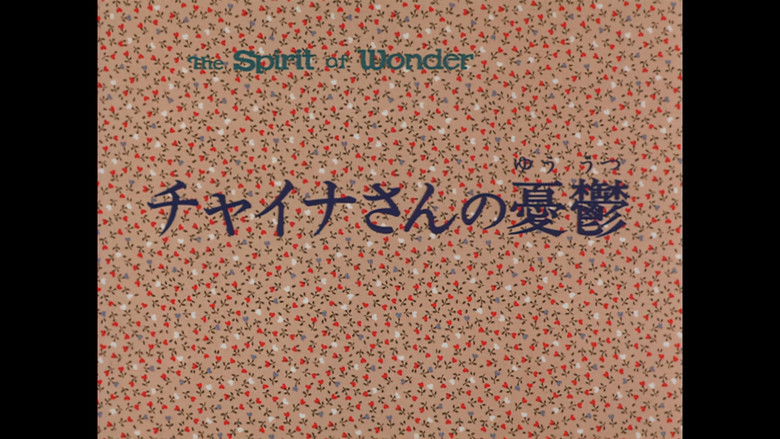 The Spirit of Wonder
ゆう うつ
チャイナさんの憂鬱